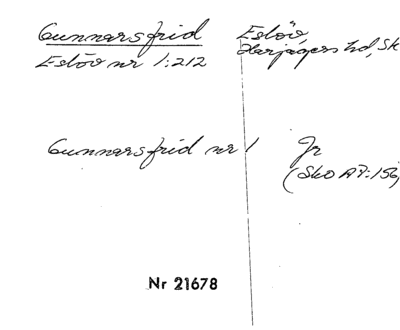 Gunnarsfrid Eslöv,
Eslöv nr 1:212 Harjagers hd, Sk
Gunnarsfrid nr 1 Jr
(Sko A7:156)
Nr 21678